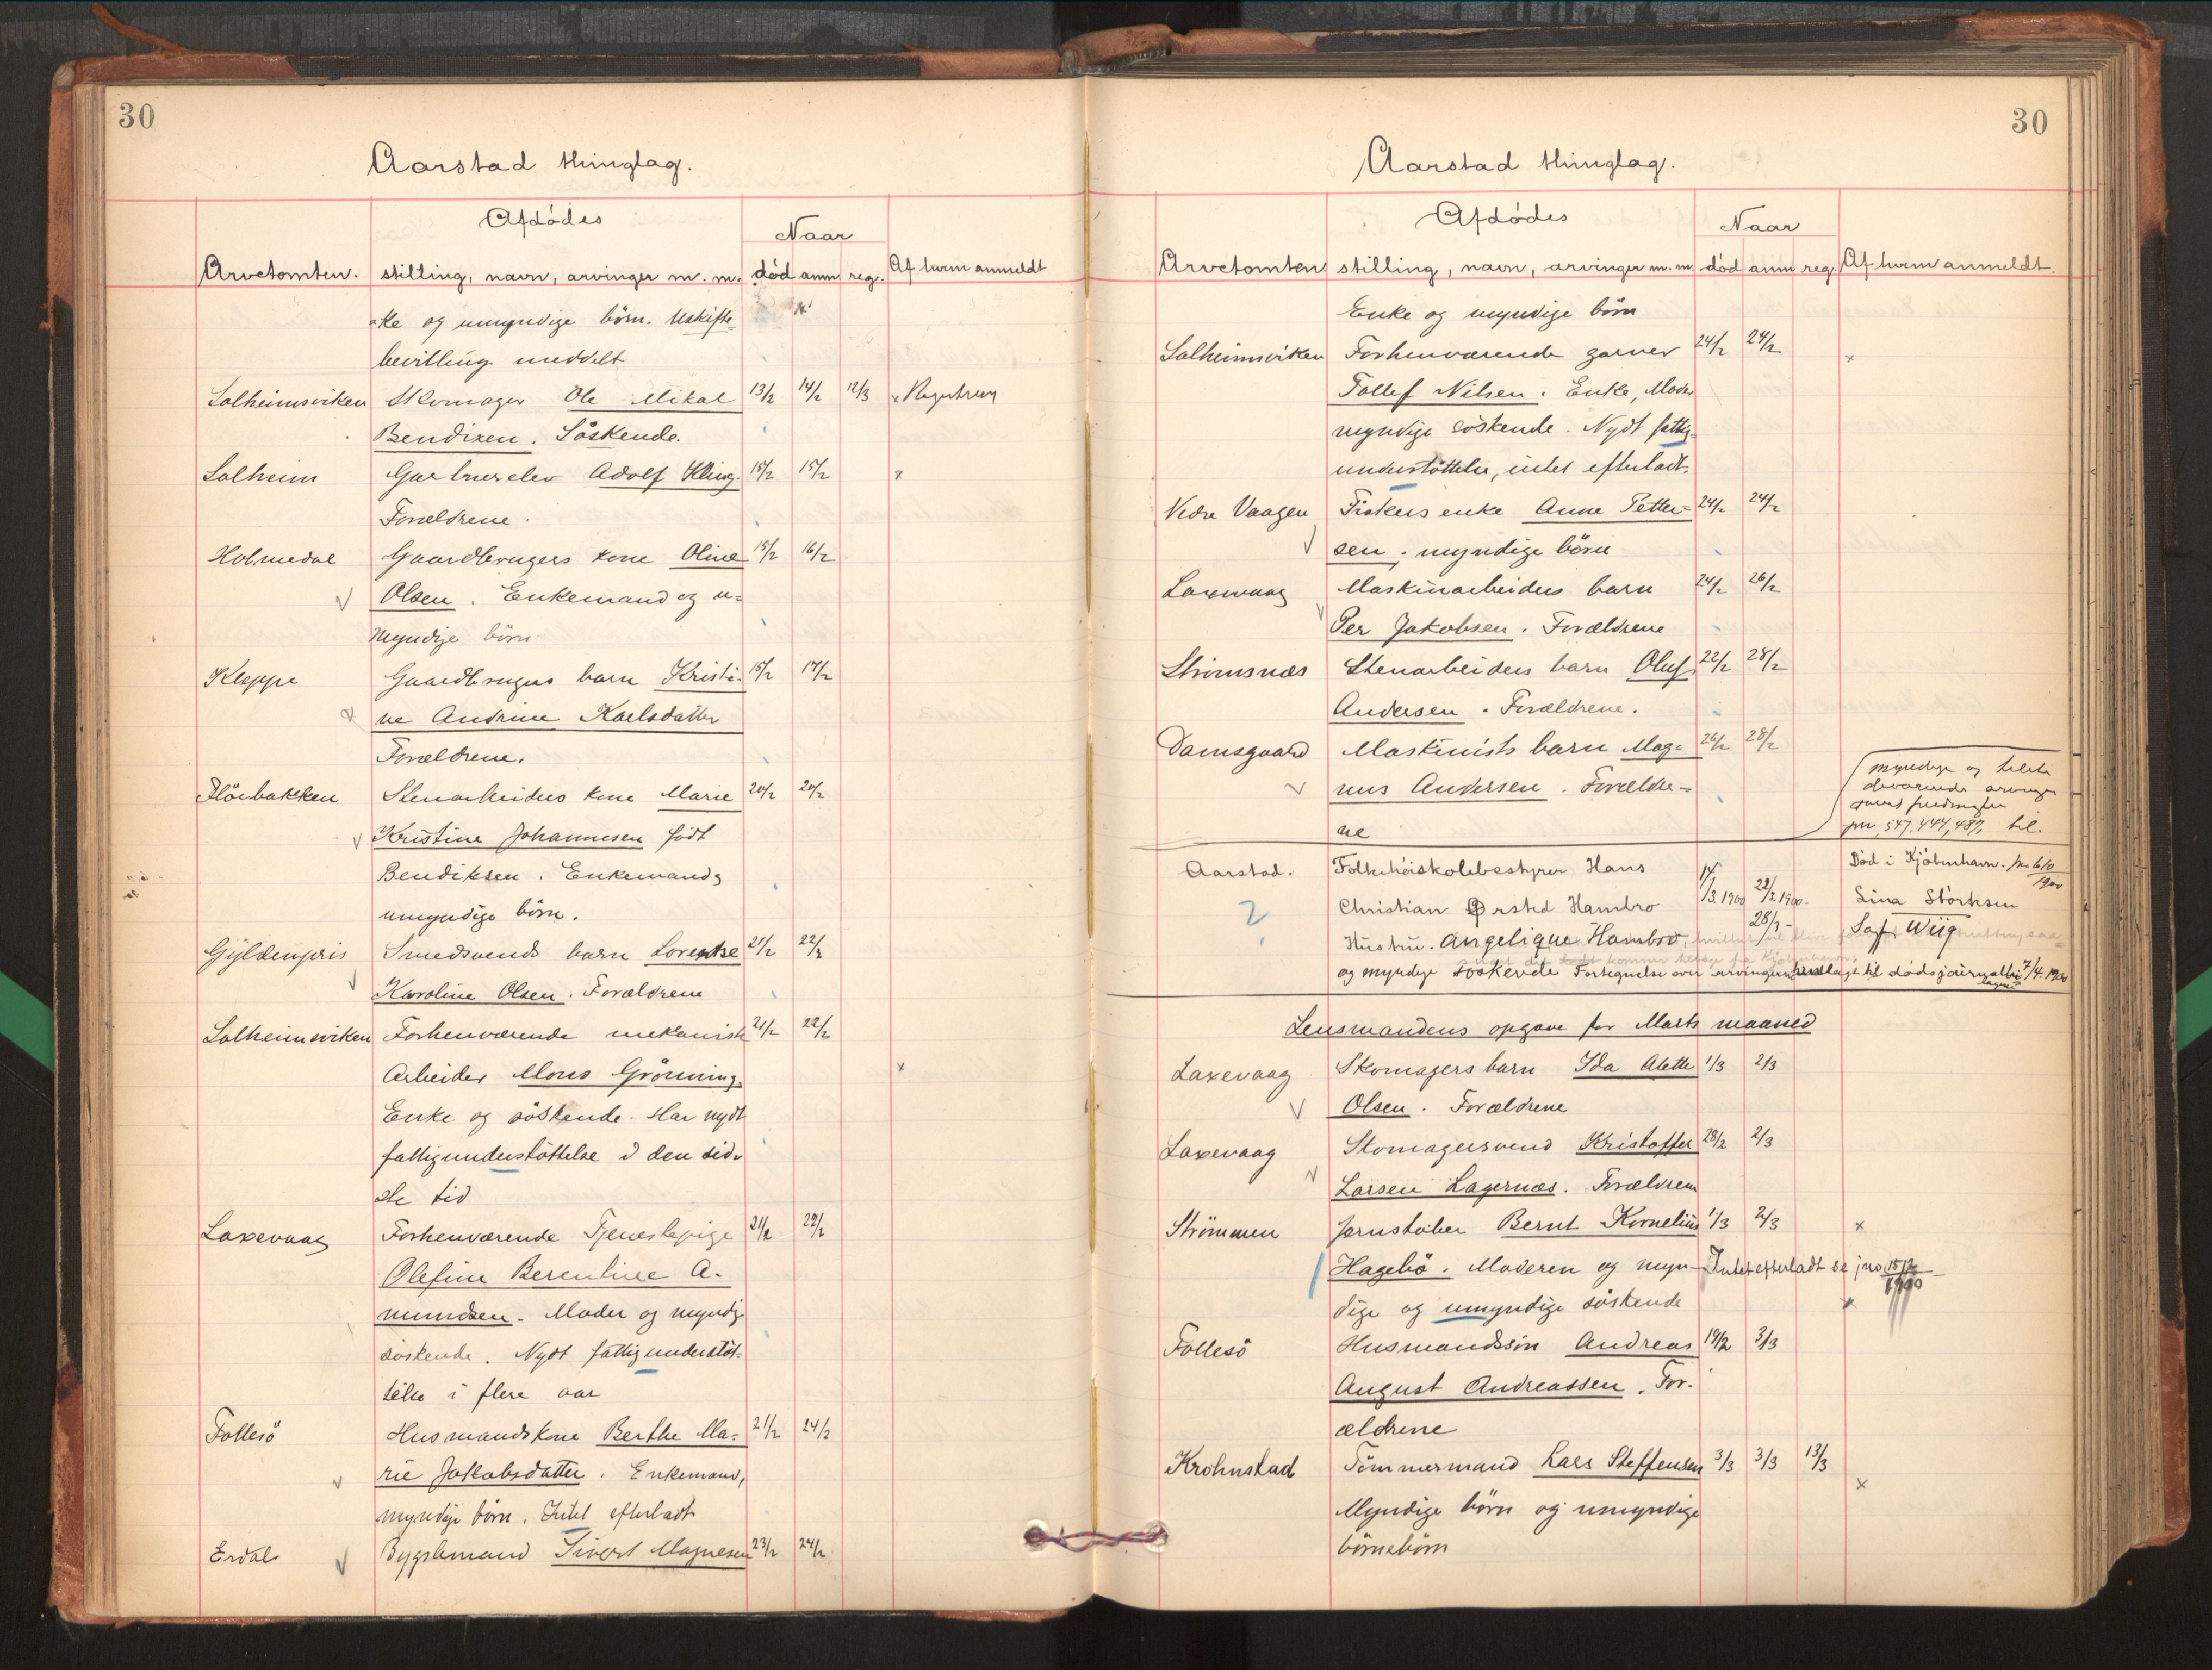 30
Aarstad thinglag.
Afdödes
Naar
Arvetomten. stilling, navn, arvinger m. m. död anm reg. Af hvem anmeldt
ke og umyndige börn. Uskifte-
bevilling meddelt
Solheimsviken Skomager Ole Mikal 13/2 14/2 12/3 x Registrering
Bendixen. Söskende.
Solheim Gartnerelev Adolf Kling. 15/2 15/2 x
Forældrene.
Holmedal Gaardbrugers kone Oline 15/2 16/2
Olsen. Enkemand og u-
myndige börn
Kleppe Gaardbrugers barn Kristi- 15/2 17/2
ne Andrine Karlsdatter
Forældrene.
Stenarbeiders kone Marie 20/2 20/2
Kristine Johannesen födt
Bendiksen. Enkemand,
umyndige börn.
Gyldenpris Smedsvends barn Lorentse 21/2 22/2
Karoline Olsen. Forældrene
Solheimsviken Forhenværende mekanisk 21/2 22/2
Arbeider Mons Grönning. x
Enke og söskende. Har nydt
fattigunderstöttelse i den sid-
ste tid
Laxevaag Forhenværende Tjenestepige 21/2 22/2
Olefine Berentine A-
mundsen. Moder og myndige
söskende. Nydt fattigunderstöt-
telse i flere aar
Follesö Husmandskone Berthe Ma- 21/2 24/2
rie Jakobsdatter. Enkemand,
myndige börn. Intet efterladt
Erdal Bygselmand Sivert Magnesen 23/2 24/2
30
Aarstad thinglag.
Afdödes
Naar
Arvetomten stilling, navn, arvinger m. m. död anm reg. Af hvem anmeldt.
Enke og myndige börn
Solheimsviken Forhenværende garver 24/2 24/2 x
Tollef Nilsen. Enke, Moder
myndige söskende. Nydt fattig-
understöttelse, intet efterladt.
Nedre Vaagen Fiskers enke Anne Petter- 24/2 24/2
sen. myndige börn
Laxevaag Maskinarbeiders barn 24/2 26/2
Per Jakobsen. Forældrene
Strömsnæs Stenarbeiders barn Oluf 22/2 28/2
Andersen. Forældrene.
Damsgaard Maskinists barn Mag- 26/2 28/2
nus Andersen. Forældre-
ne
myndige og tilste
deværende arvinger
547. 444, 487, til.
Aarstad. Folkehöiskolebestyrer Hans 14/3.1900 Död i Kjöbenhavn. 610/1900
Christian Ørsted Hambro 22/3.1900. Sina Störksen
Hustru. Angelique Hambro, 28/3 - Sagf Wiig
og myndige söskende Fortegnelse over arvingerne til dödsjournalbilagene 7/4.1900
Lensmandens opgave for Marts maaned
Laxevaag Skomagers barn Ida Alette 1/3 2/3
Olsen. Forældrene
Laxevaag Skomagersvend Kristoffer 28/2 2/3
Larsen Lagernæs. Forældrene
Strömmen Jernstöber Bernt Kornelius 1/3 2/3 x
Hagebö. Moderen og myn- Intet efterladt se jno 1512/1900
dige og umyndige söskende x
Follesö Husmandssön Andreas 19/2 3/3
August Andreassen. For-
ældrene
Krohnstad Tömmermand Lars Steffensen 3/3 3/3 13/3 x
Myndige börn og umyndige
börnebörn